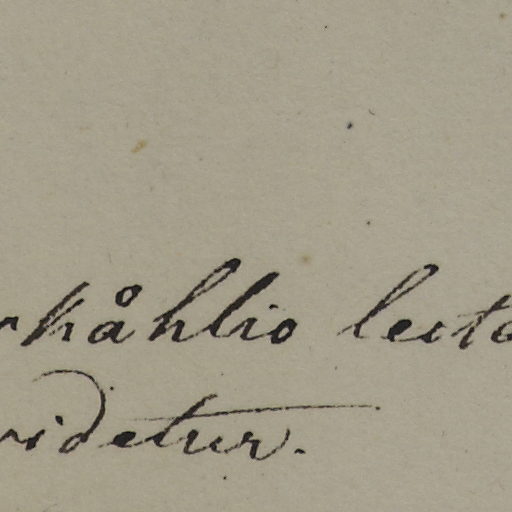 rkåhlio lecta
videtur.